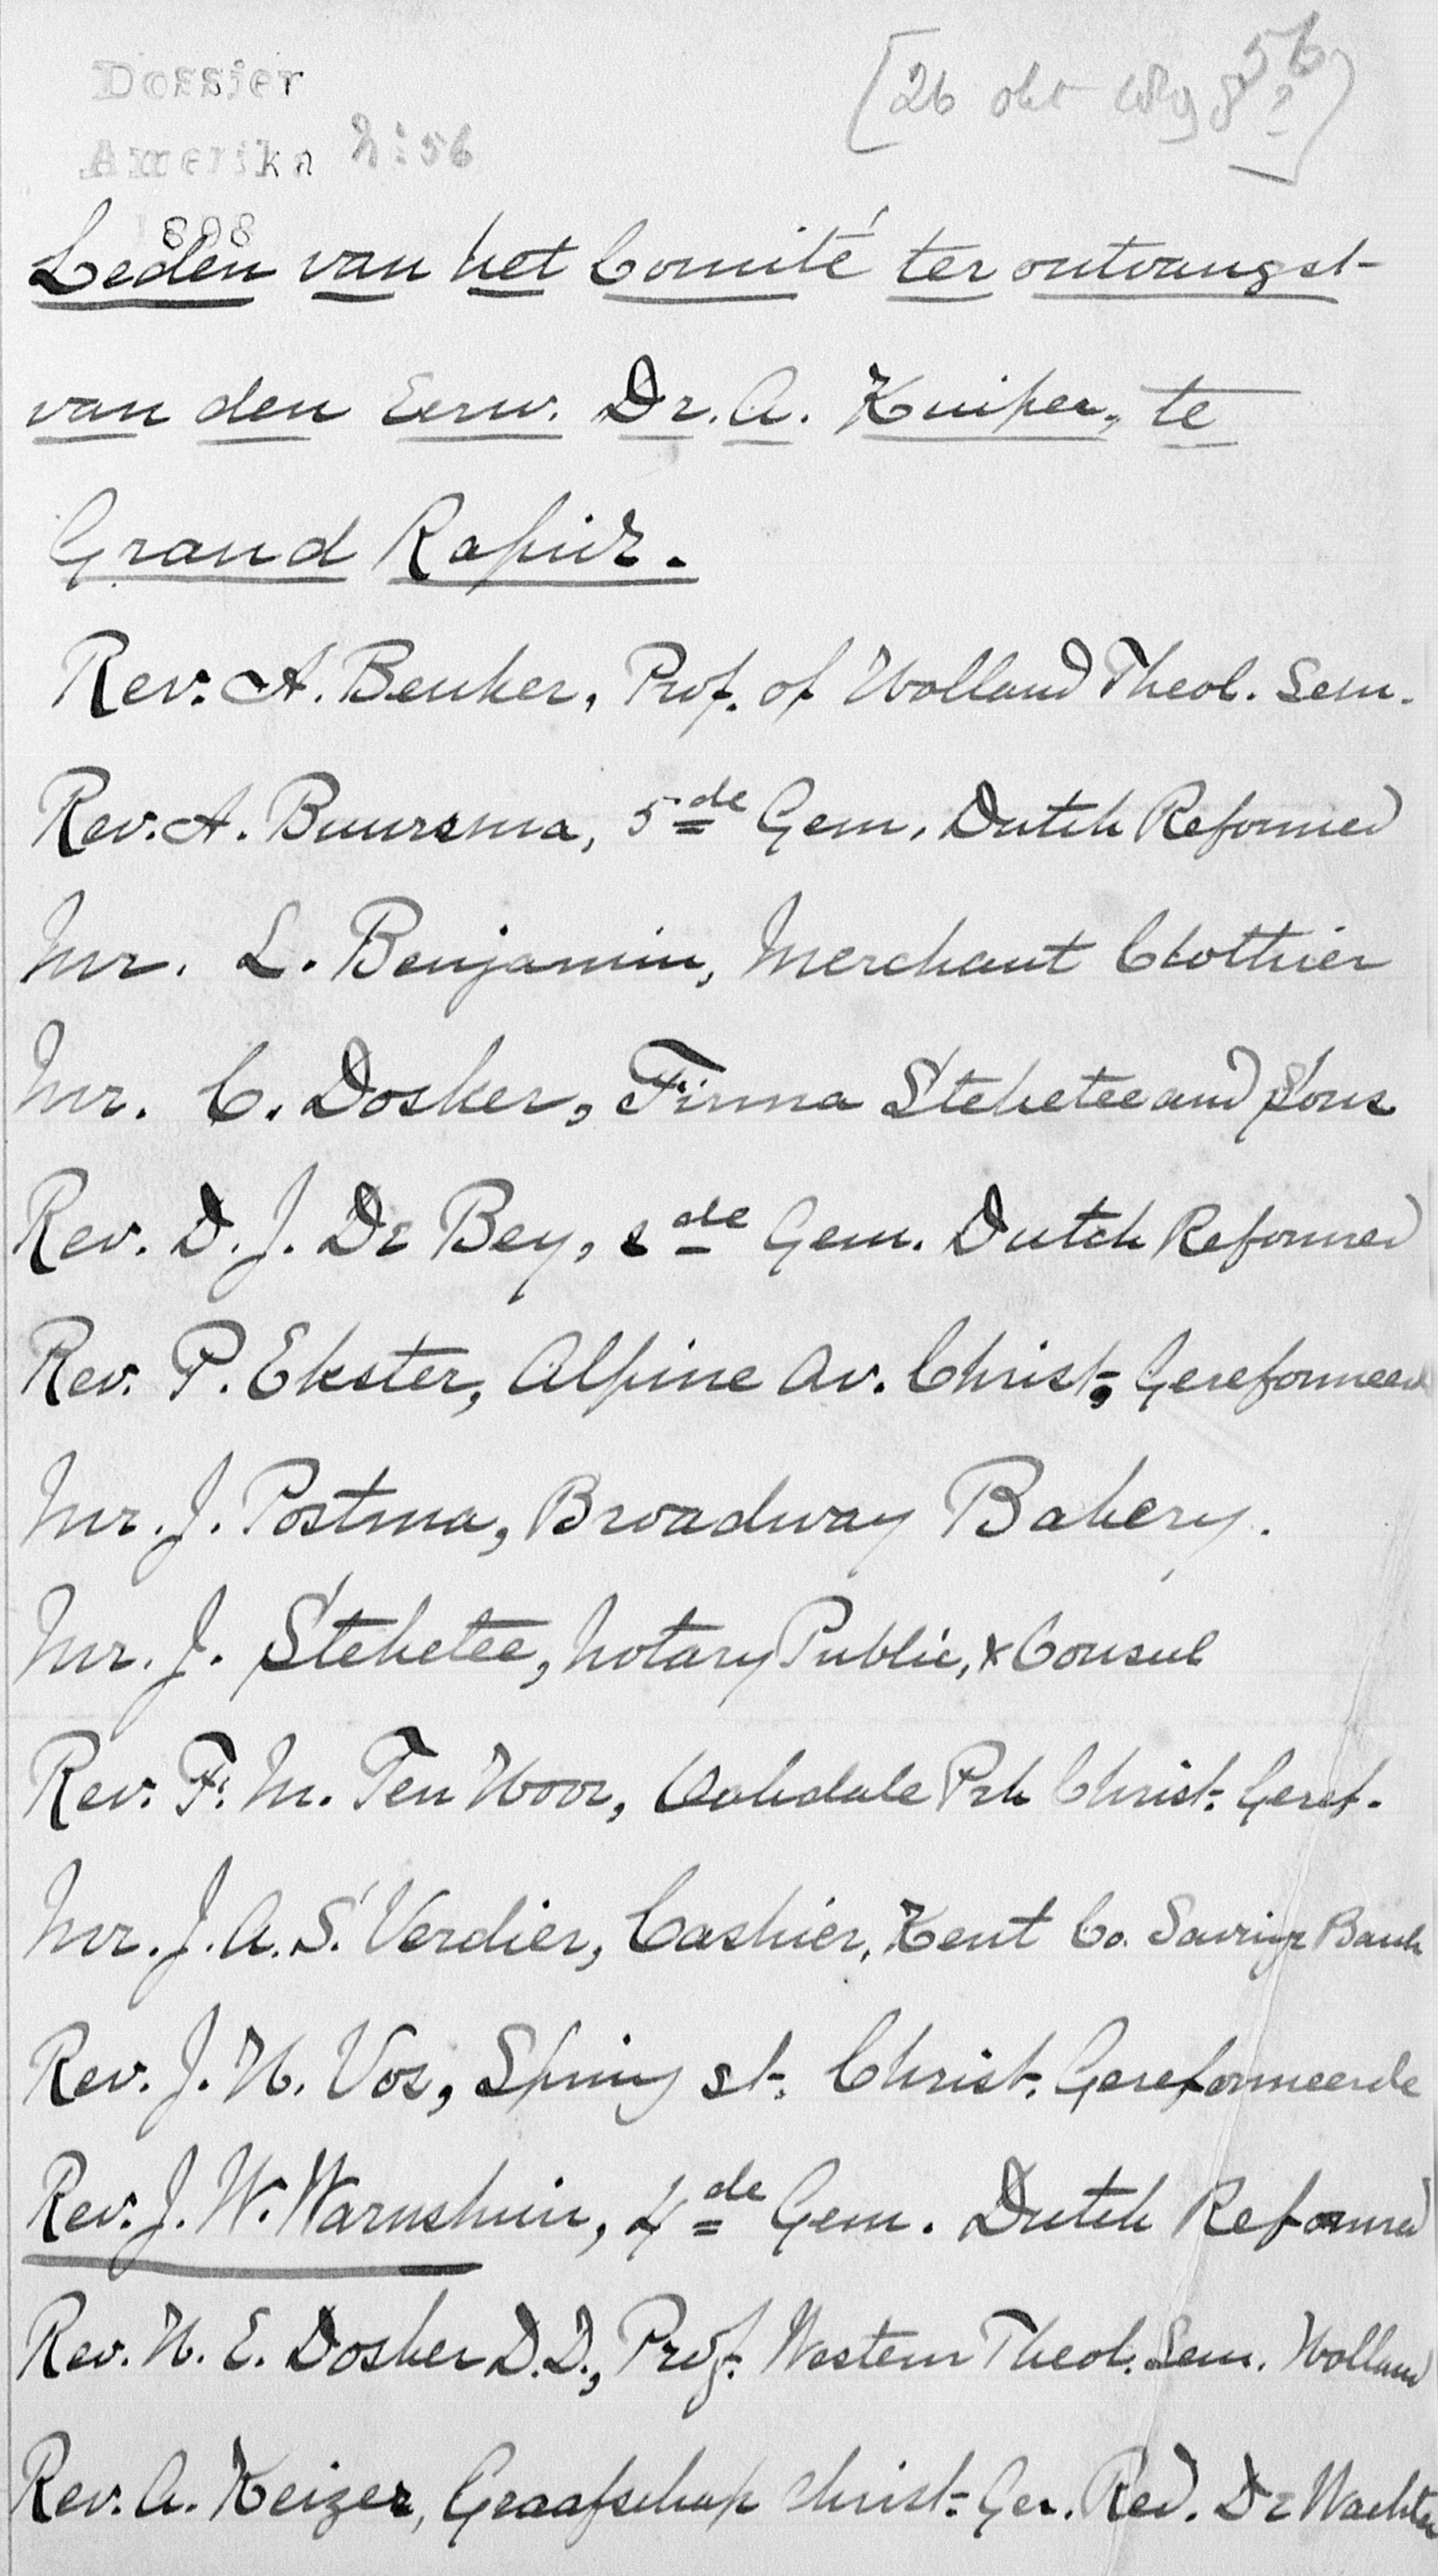 Dossier
Amerika N: 56
1898
[26 okt 1898 56]
Leden van het Comité ter ontvangst
van den Eerw. Dr. A. Kuiper, te
Grand Rapids.
Rev. A. Beuker, Prof. of Holland Theol. Sem.
Rev. A. Buursma, 5de Gem. Dutch Reformed
Mr. L. Benjamin, Merchant Clothier
Mr. C. Dosker, Firma Steketee and Sons
Rev. D. J. De Bey, 2de Gem. Dutch Reformed
Rev. P. Ekster, Alpine Av. Christ. Gereformeerd
Mr. J. Postma, Broadway Bakery.
Mr. J. Steketee, Notary Public, & Consul
Rev. F. M. Ten Hoor, Oakdale Prk Christ. Geref.
Mr. J. A. S. Verdier, Cashier, Kent Co. Savings Bank
Rev. J. H. Vos, Spring st. Christ. Gereformeerde
Rev. J. W. Warnshuis, 4de Gem. Dutch Reformed
Rev. H. E. Dosker D.D., Prof. Western Theol. Sem. Holland
Rev. A. Keizer, Graafschap Christ. Ger. Red. De Wachter